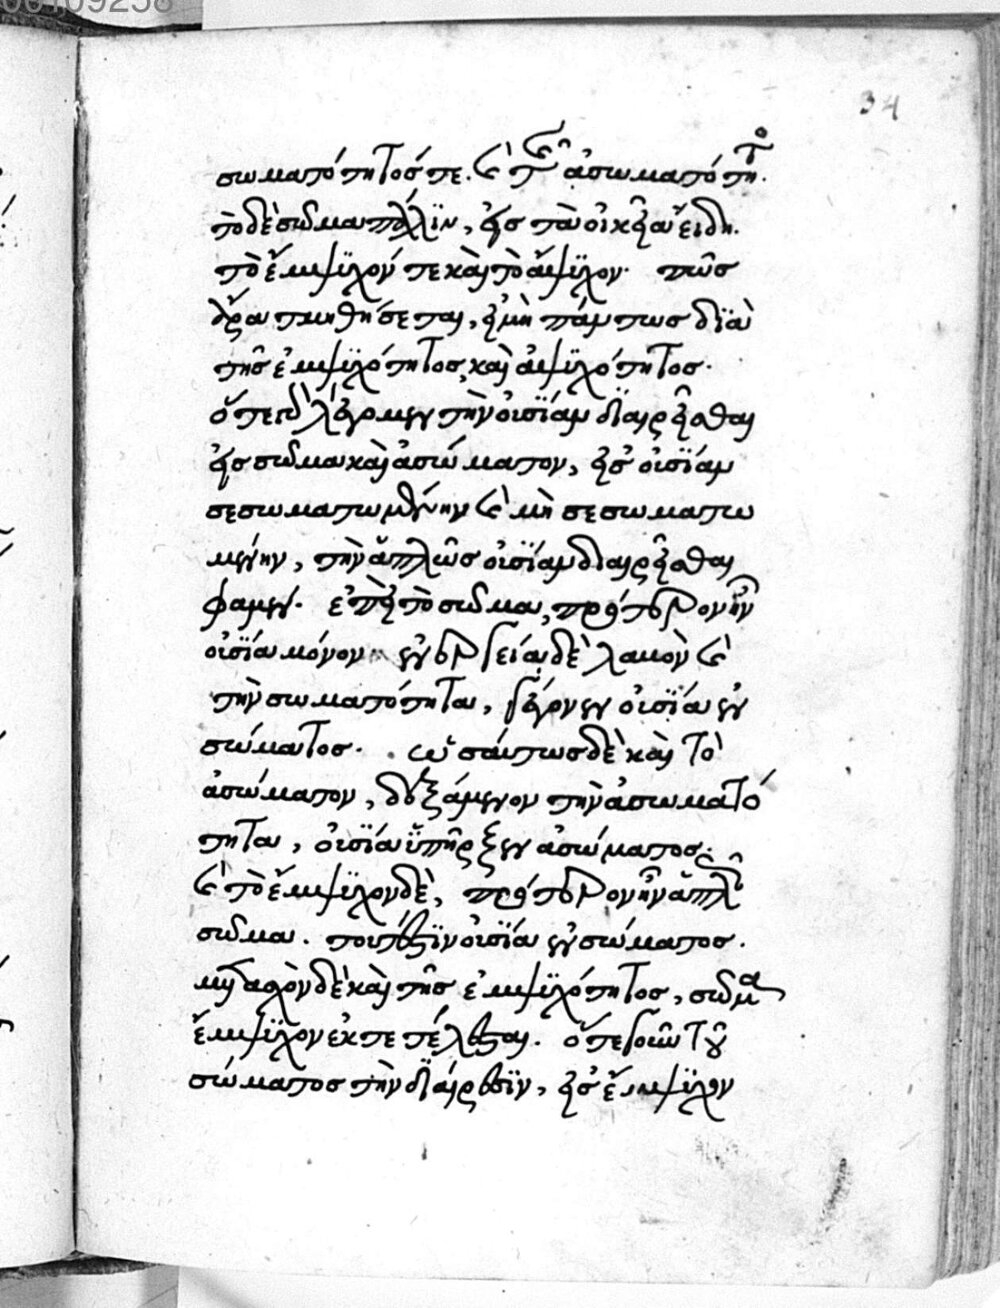 00109258
34
σωματότητός τε. καὶ τῆς ἀσωματότητος.
τὸ δὲ σῶμα πάλιν, εἰς τὰ οἰκεῖα εἴδη.
τὸ ἔμψϋχόν τε καὶ τὸ ἄψϋχον. πῶς
ἄρα τμηθήσεται, εἰ μὴ πάντως διὰ
τῆς ἐμψϋχότητος καὶ ἀψϋχότητος.
ὅτε γὰρ λέγομεν τὴν οὐσίαν διαιρεῖσθαι
εἰς σῶμα καὶ ἀσώματον, εἰς οὐσίαν
σεσωματωμένην καὶ μὴ σεσωματω
μένην, τὴν ἁπλῶς οὐσίαν διαιρεῖσθαι
φαμεν. ἐπεὶ τὸ σῶμα, πρότερον ἦν
οὐσία μόνον εἶτα δὲ λαβὸν καὶ
τὴν σωματότητα, γέγονεν οὐσία ἐν
σώματος. ὡσαύτως δὲ καὶ τὸ
ἀσώματον, δεξάμενον τὴν ἀσωματό
τητα, οὐσία ὑπῆρξεν ἀσώματος.
καὶ τὸ ἔμψϋχον δὲ, πρότερον ἦν ἁπλῶς
σῶμα. τουτέστιν οὐσία ἐν σώματος.
μετασχὸν δὲ καὶ τῆς ἐμψϋχότητος, σῶμα
ἔμψϋχον ἐκτετέλεσται. ὅτε γοῦν τοῦ
σώματος τὴν διαίρεσιν, εἰς ἔμψϋχον